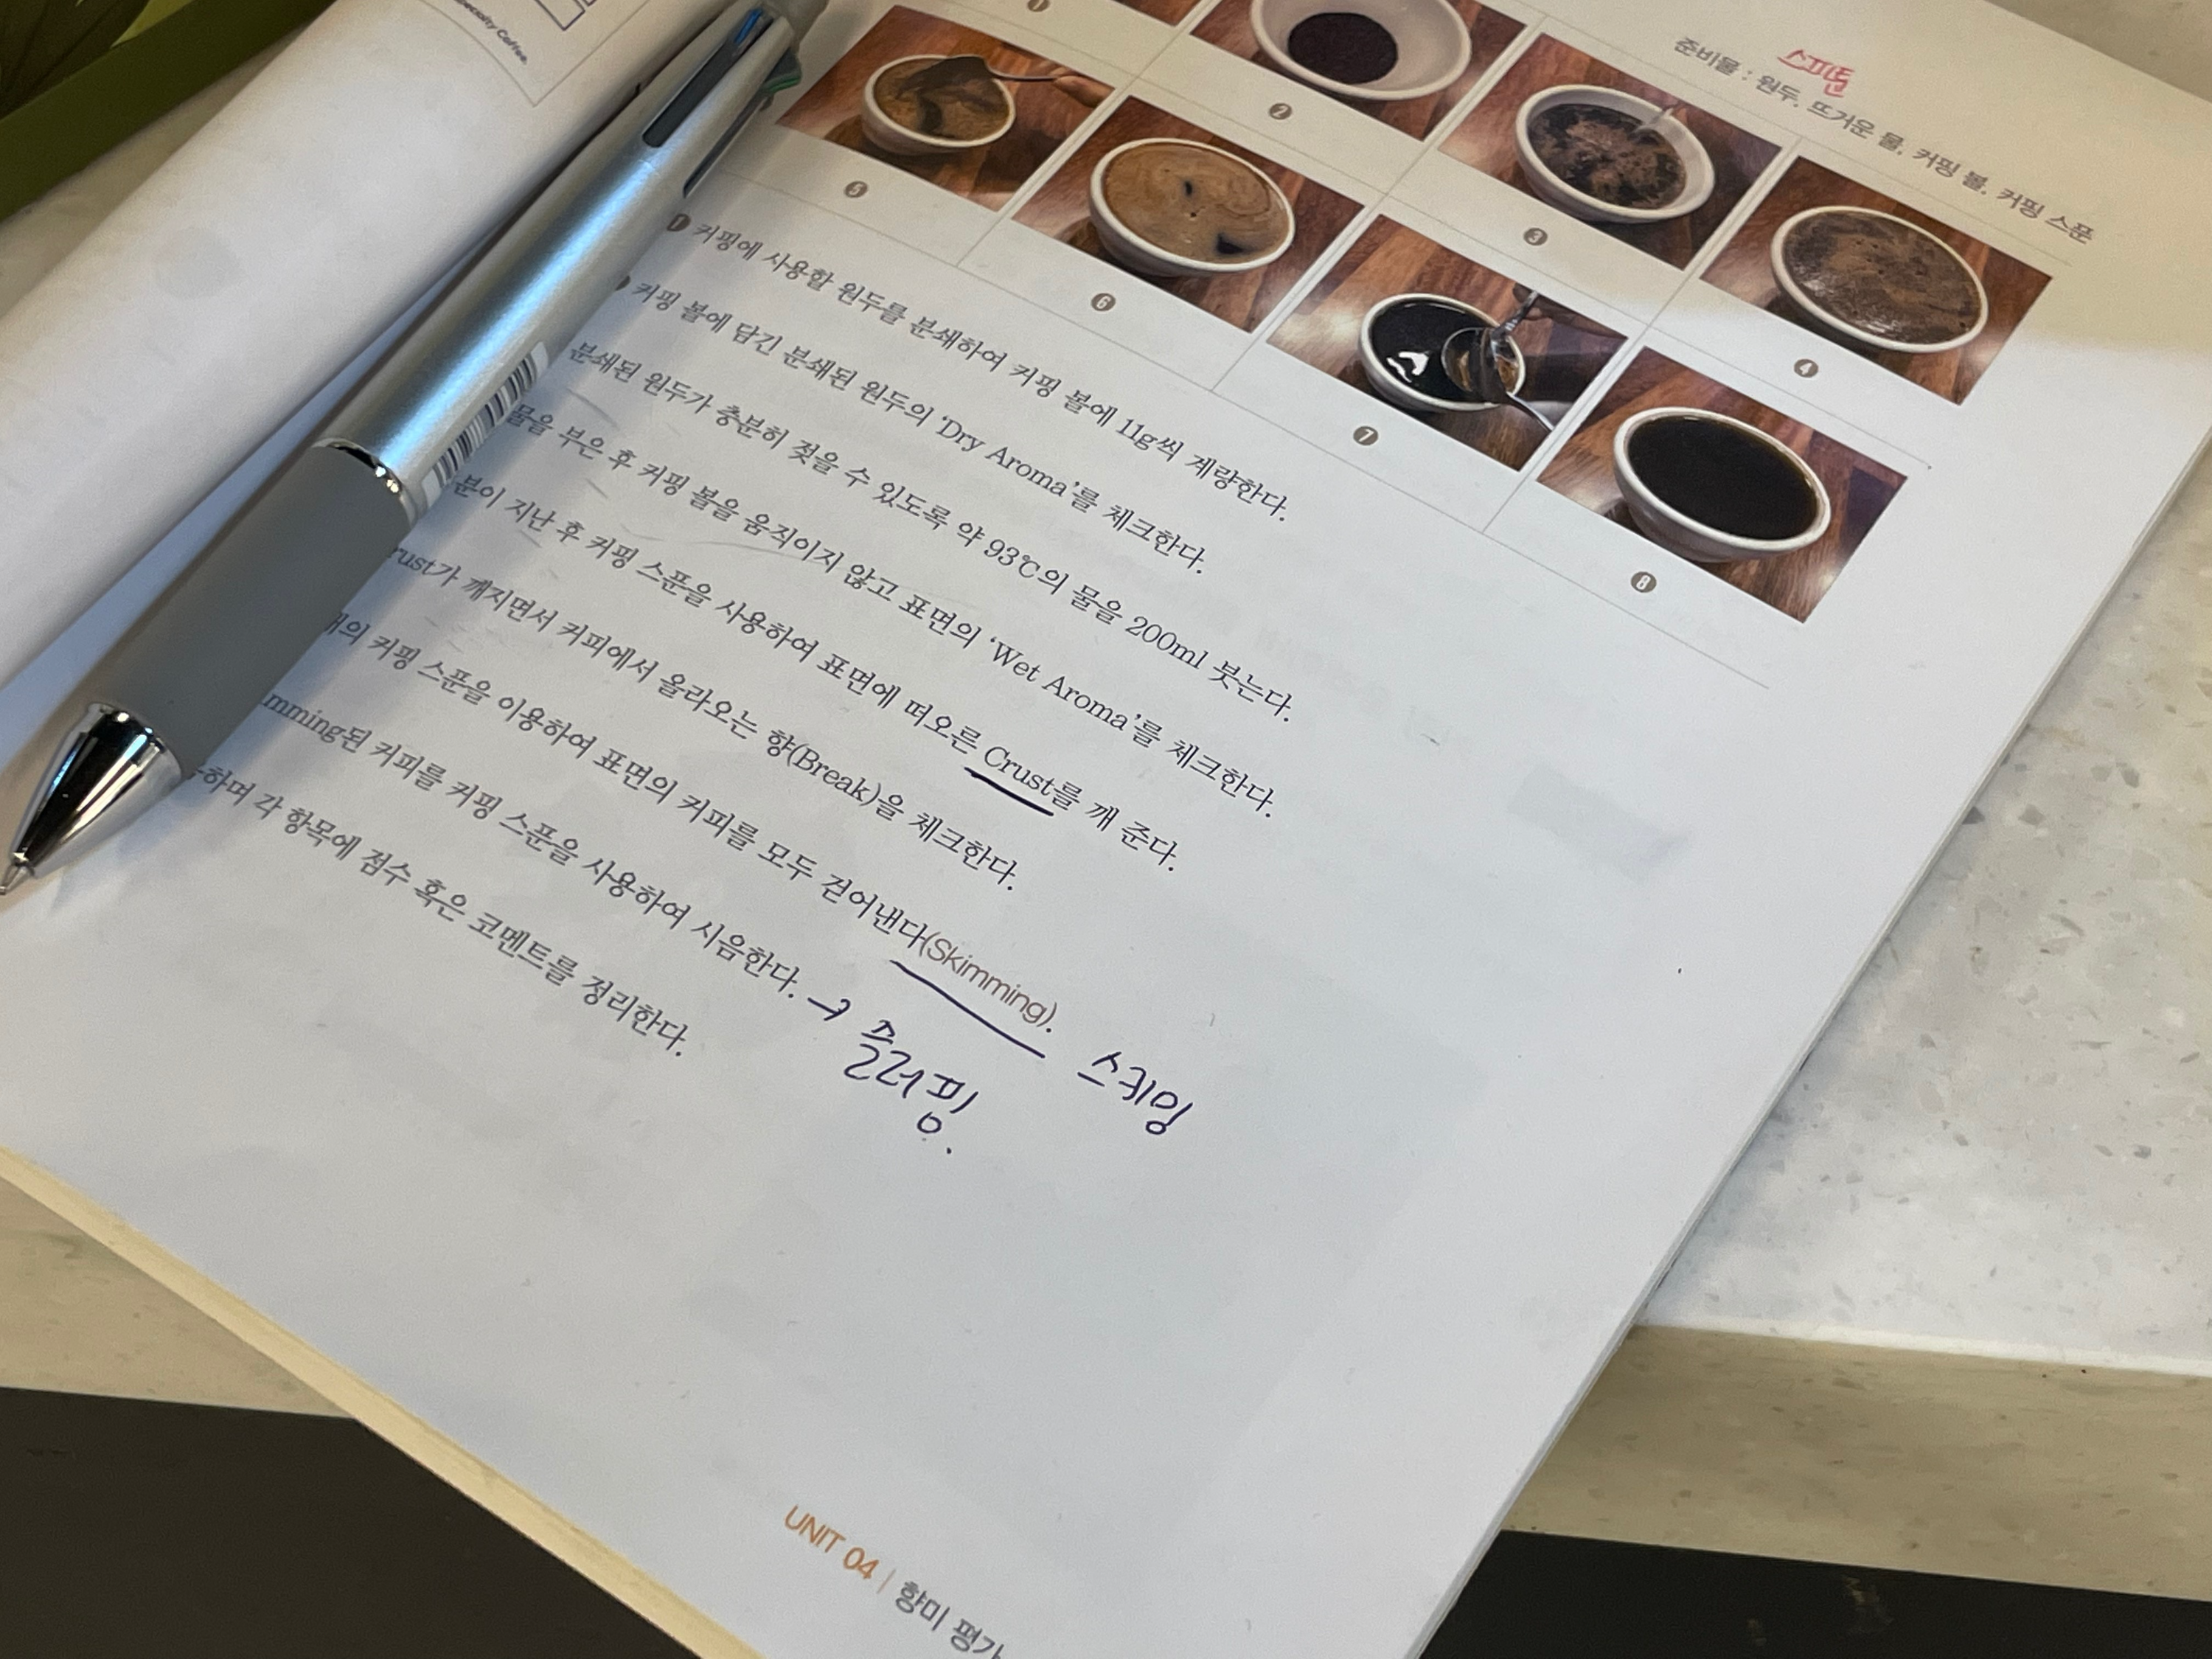 Specialty Coffee.
준비물 : 원두, 뜨거운 물, 커핑 볼, 커핑 스푼
1
2
3
4
5
6
7
8
1 커핑에 사용할 원두를 분쇄하여 커핑 볼에 11g씩 계량한다.
커핑 볼에 담긴 분쇄된 원두의 ‘Dry Aroma’를 체크한다.
분쇄된 원두가 충분히 젖을 수 있도록 약 93℃의 물을 200ml 붓는다.
물을 부은 후 커핑 볼을 움직이지 않고 표면의 ‘Wet Aroma’를 체크한다.
분이 지난 후 커핑 스푼을 사용하여 표면에 떠오른 Crust를 깨 준다.
rust가 깨지면서 커피에서 올라오는 향(Break)을 체크한다.
개의 커핑 스푼을 이용하여 표면의 커피를 모두 걷어낸다(Skimming). 스키밍
imming된 커피를 커핑 스푼을 사용하여 시음한다. → 슬러핑.
하며 각 항목에 점수 혹은 코멘트를 정리한다.
UNIT 04 | 향미 평가